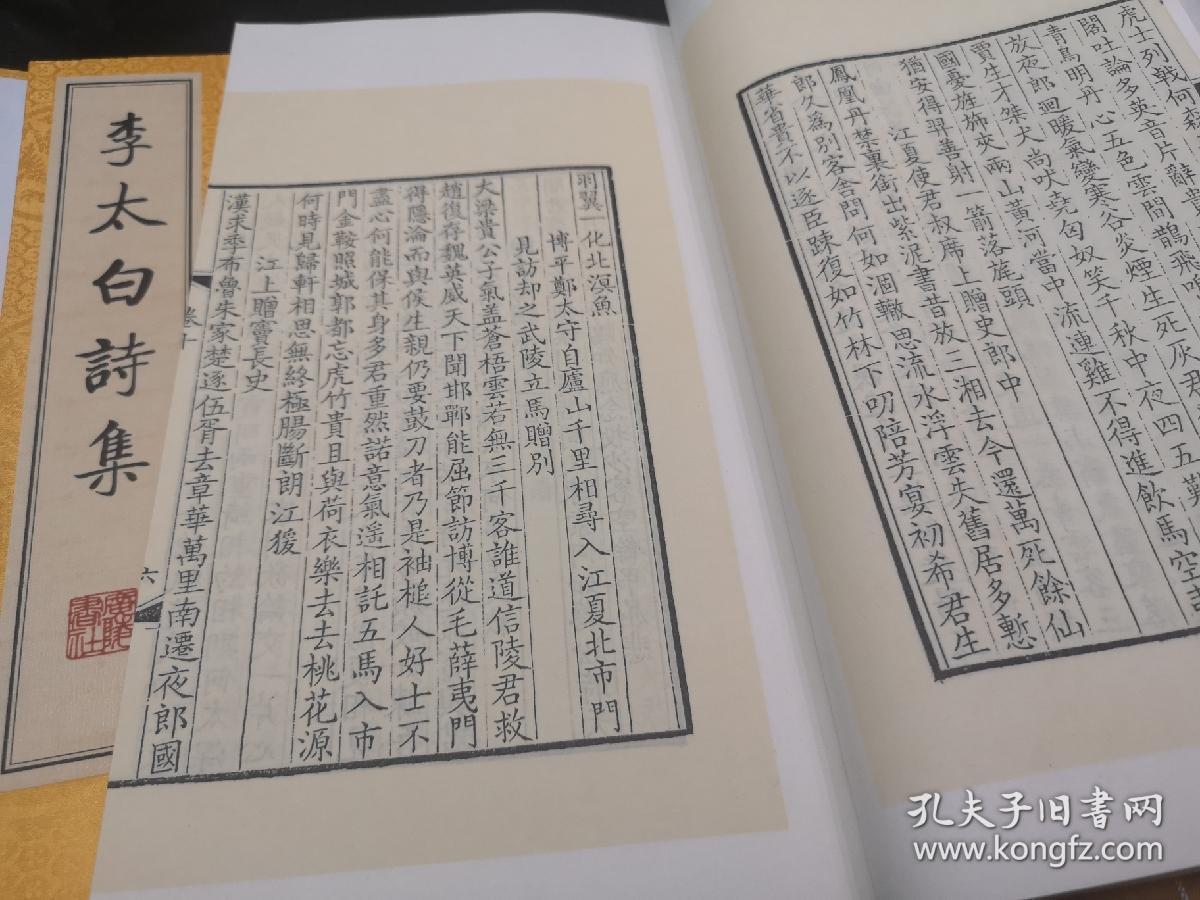 虎士列戟何森
閣吐論多英音片辭貴
青鳥明丹心五色雲間鵲飛鳴
放夜郎迴暖氣變寒谷炎煙生死灰君
賈生才桀犬尚吠堯匈奴笑千秋中夜四五歎
國憂旌旆夾兩山黃河當中流連雞不得進飲馬空
猶安得羿善射一箭落旄頭
江夏使君叔席上贈史郎中
鳳凰丹禁裏銜出紫泥書昔放三湘去今還萬死餘仙
郎久為別客舍問何如涸轍思流水浮雲失舊居多慙
華省貴不以逐臣踈復如竹林下叨陪芳宴初希君生
羽翼一化北溟魚
博平鄭太守自廬山千里相尋入江夏北市門
見訪却之武陵立馬贈別
大梁貴公子氣盖蒼梧雲若無三千客誰道信陵君救
趙復存魏英威天下聞邯鄲能屈節訪博從毛薛夷門
得隱淪而與侯生親仍要鼓刀者乃是袖槌人好士不
盡心何能保其身多君重然諾意氣遥相託五馬入市
門金鞍照城郭都忘虎竹貴且與荷衣樂去去桃花源
何時見歸軒相思無終極腸斷朗江猨
江上贈竇長史
漢求季布魯朱家楚逐伍胥去章華萬里南遷夜郎國
卷十
六
李太白詩集
廣陵書社
孔夫子旧書网
www.kongfz.com